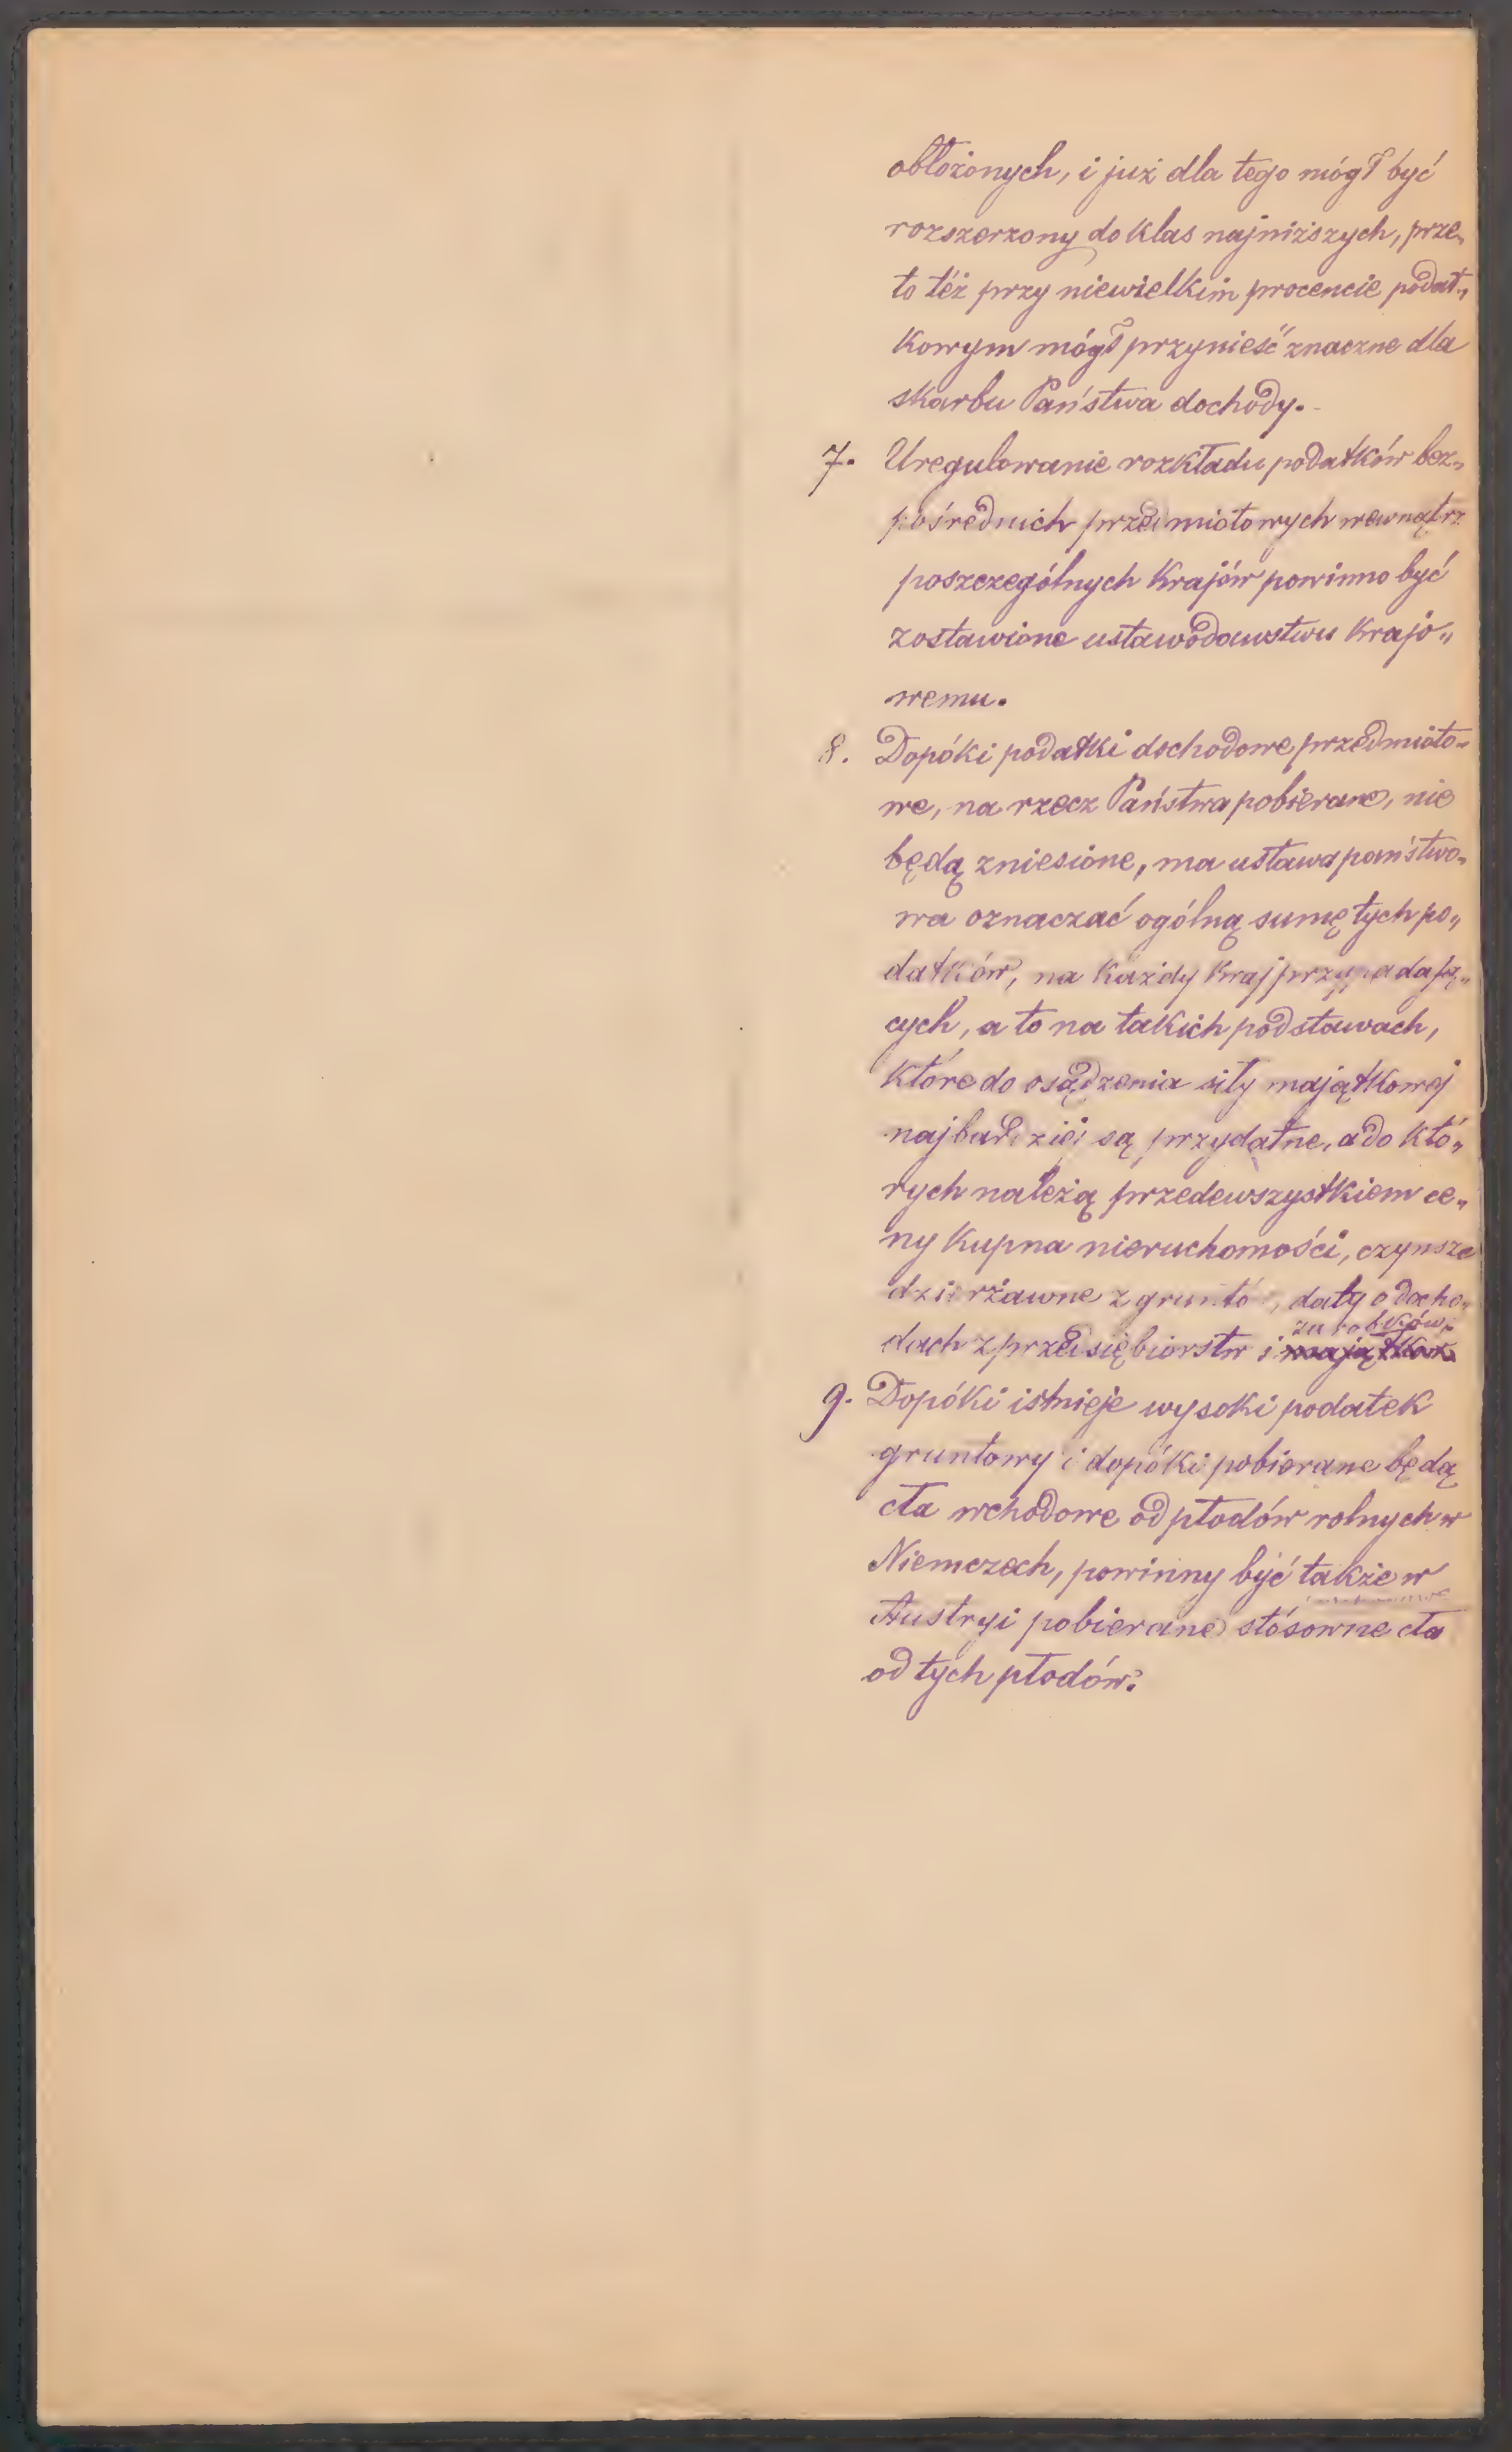 obłożonych, i już dla tego mógł być
rozszerzony do klas najniższych, prze„
to téż przy niewielkim procencie podat„
kowym mógł przynieść znaczne dla
skarbu Państwa dochody.-
7. Uregulowanie rozkładu podatków bez„
pośrednich przedmiotowych wewnątrz
poszczególnych krajów powinno być
zostawione ustawodawstwu krajo„
wemu.
8. Dopóki podatki dochodowe przedmioto-
we, na rzecz Państwa pobierane, nie
będą zniesione, ma ustawa państwo„
wa oznaczać ogólną sumę tych po„
datków, na każdy kraj przypadają„
cych, a to na takich podstawach,
które do osądzenia siły majątkowej
najbardziej są przydatne, a do któ„
rych należą przedewszystkiem ce„
ny kupna nieruchomości, czynsze
dzierżawne z gruntów, daty o docho„
zarobków.
dach z przedsiębiorstw i
9. Dopóki istnieje wysoki podatek
gruntowy i dopóki pobierane będą
cła wchodowe od płodów rolnych w
Niemczech, powinny być także w
Austryi pobierane stósowne cła
od tych płodów.